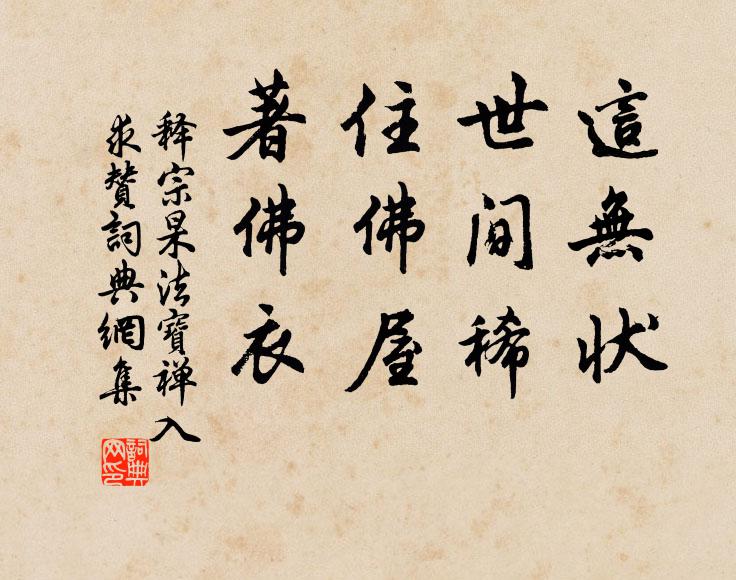 這無狀
世间稀
住佛屋
著佛衣
释宗杲法寶禅入
求賛詞典網集
詞典
网印